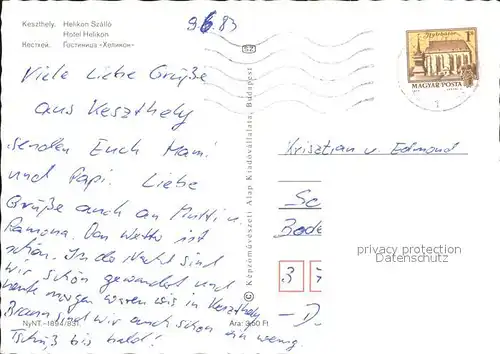 Keszthely. Helikon Szálló
Hotel Helikon
Кестхей. Гостиница «Хеликон»
9.6.83
Viele Liebe Grüße
aus Keszthely
senden Euch Mami
und Papi. Liebe
Grüße auch an Mutti u.
Ramona. Das Wetter ist
schön. In der Nacht sind
wir schön gewandert und
heute morgen waren wir in Keszthely
Braun sind wir auch schon ein wenig.
Tschüß bis bald!
NyNT.-1894/831.
Ára: 3,60 Ft
© Képzőművészeti Alap Kiadóvállalata, Budapest
SZ
1 Ft
MAGYAR POSTA
Krisztian u. Edmond
Sc
Bode
3
– D
privacy protection
Datenschutz